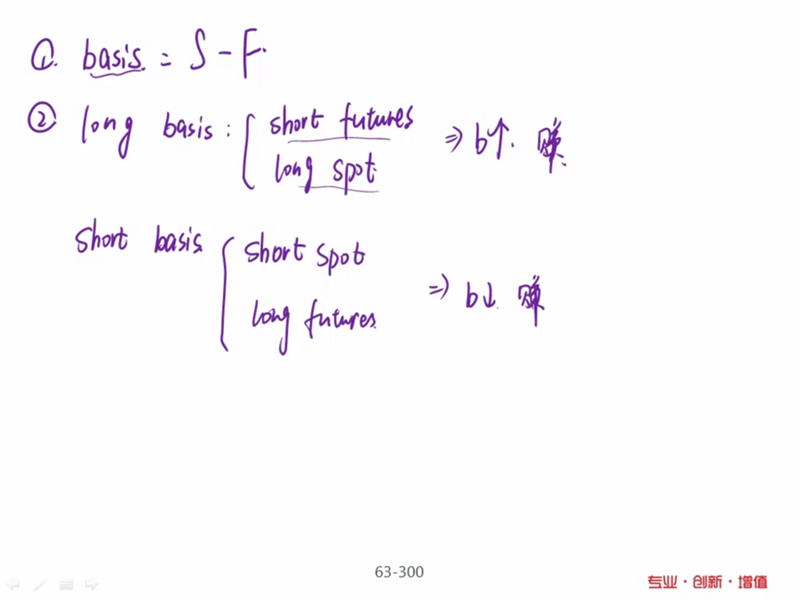 ①. basis = S - F.
② long basis: { short futures ⇒ b↑. 赚.
long spot
short basis { short spot ⇒ b↓. 赚
long futures
63-300
专业·创新·增值